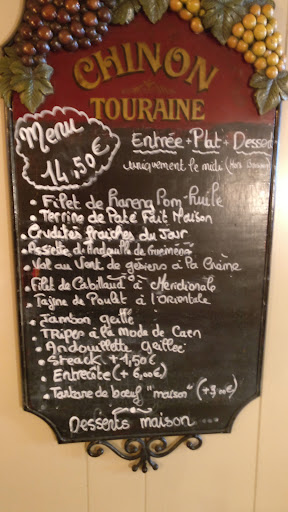 CHINON
TOURAINE
Menu
14,50€
Entrée + Plat + Dessert
uniquement le midi (Hors
• Filet de Hareng Pom-huile
• Terrine de Paté Fait Maison
• Crudités fraiches du Jour
• Assiette d'Andouille de Guémené
• Vol au Vent de gésiers à la Crème
• Filet de Cabillaud à Méridionale
• Tajine de Poulet à l'Orientale
• Jambon grillé
• Tripes à la Mode de Caen
• Andouillette Grillée
• Steack +4,50€
• Entrecôte (+ 6,00€)
• Tartare de bœuf "maison" (+3,00€)
Desserts maison